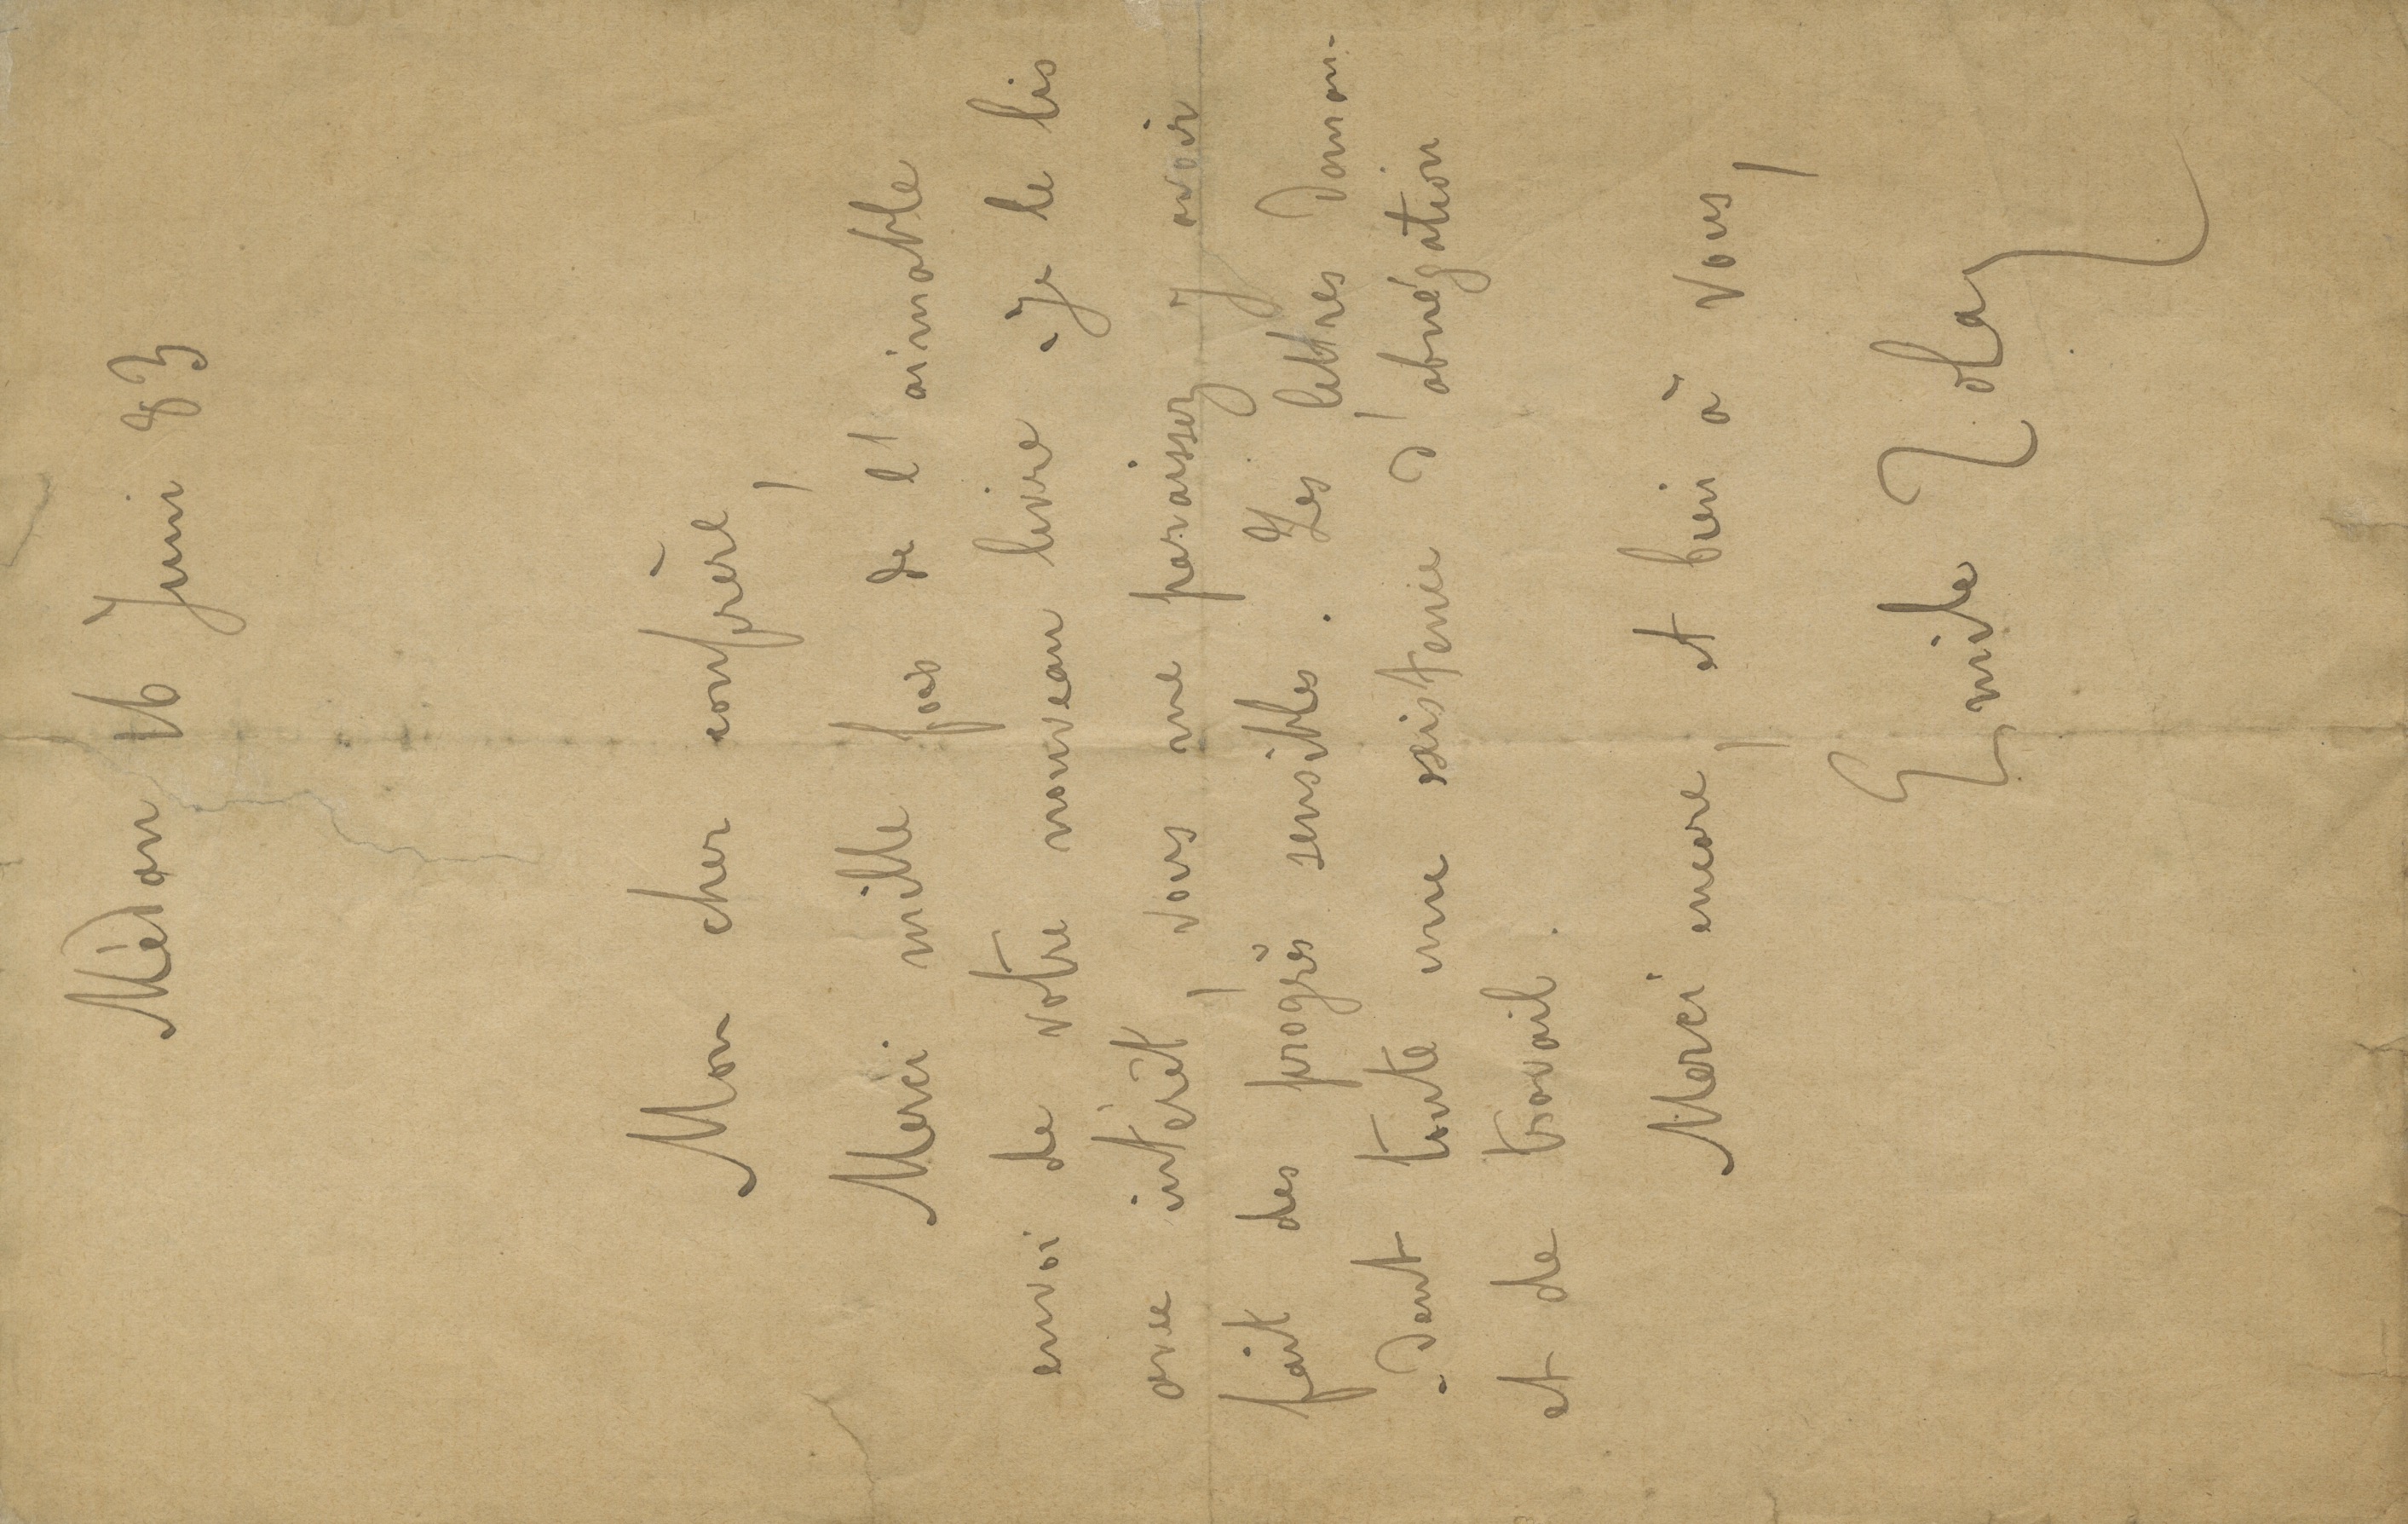 Médan 16 Juin 83
Mon cher confrère,
Merci mille fois de l'aimable
envoi de votre nouveau livre. Je le lis
avec intérêt, vous me paraissez y avoir
fait des progrès sensibles. Les lettres deman-
-dent toute une existence d'abnégation
et de travail.
Merci encore, et bien à vous,
Emile Zola